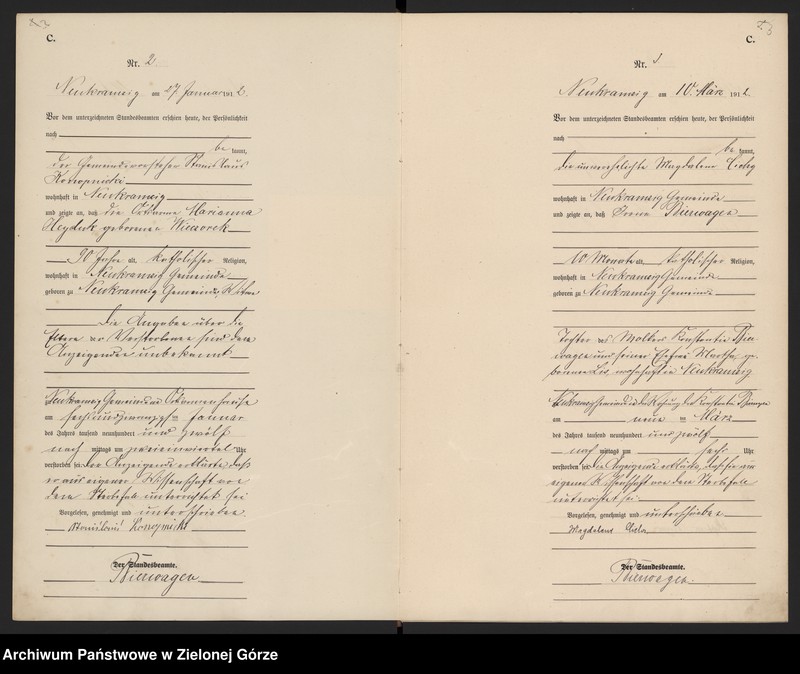 C.
Nr. 2
Neukramzig am 27 Januar 1912.
Vor dem unterzeichneten Standesbeamten erschien heute, der Persönlichkeit
nach
be kannt,
der Gemeindevorsteher Stanislaus
Konopnicki
wohnhaft in Neukramzig
und zeigte an, daß die Marianna
Heyduk geborenen Wieczorek
90 Jahre alt, katholischer Religion,
wohnhaft in Neukramzig Gemeinde
geboren zu Neukramzig Gemeinde,
Die Angaben über die
Eltern der Verstorbenen sind dem
Anzeigenden unbekannt
Neukramzig Gemeinde im
am sechsundzwanzigsten Januar
des Jahres tausend neunhundert und zwölf
nach mittags um Uhr
verstorben sei. Der Anzeigende erklärte, daß
er aus eigener Wissenschaft von
dem Sterbefall unterrichtet sei
Vorgelesen, genehmigt und unterschrieben
Konopnicki
Der Standesbeamte.
Bierwagen
C.
Nr. 3
Neukramzig am 10. März 1912.
Vor dem unterzeichneten Standesbeamten erschien heute, der Persönlichkeit
nach
be kannt,
die unverehelichte Magdalena
wohnhaft in Neukramzig Gemeinde
und zeigte an, daß Bierwagen
10 Monate alt, katholischer Religion,
wohnhaft in Neukramzig Gemeinde
geboren zu Neukramzig Gemeinde
Tochter des Konstantin Bier-
wagen und seiner Ehefrau Martha, ge-
borenen wohnhaft in Neukramzig
Neukramzig Gemeinde in der Wohnung des Konstantin Bierwagen
am neun ten März
des Jahres tausend neunhundert und zwölf
nach mittags um sechs Uhr
verstorben sei. Die Anzeigende erklärte, daß sie aus
eigener Wissenschaft von dem Sterbefall
unterrichtet sei
Vorgelesen, genehmigt und unterschrieben
Magdalena
Der Standesbeamte.
Bierwagen
Archiwum Państwowe w Zielonej Górze